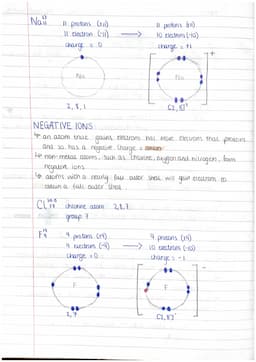 Na 23 11
11 protons (+11)    11 protons (+11)
11 electron (-11) → 10 electrons (-10)
charge = 0    charge = +1
Na    Na +
2,8,1    [2,8]+
NEGATIVE IONS
↳ an atom that gains electrons has more electrons than protons
and so has a negative charge
↳ non-metal atoms, such as chlorine, oxygen and nitrogen, form
negative ions
↳ atoms with a nearly full outer shell will gain electrons to
obtain a full outer shell
Cl 35.5 17 chlorine atom 2,8,7
group 7
F 19 9
9 protons (+9)    9 protons (+9)
9 electrons (-9) → 10 electrons (-10)
charge = 0    charge = -1
F    F -
2,7    [2,8]-